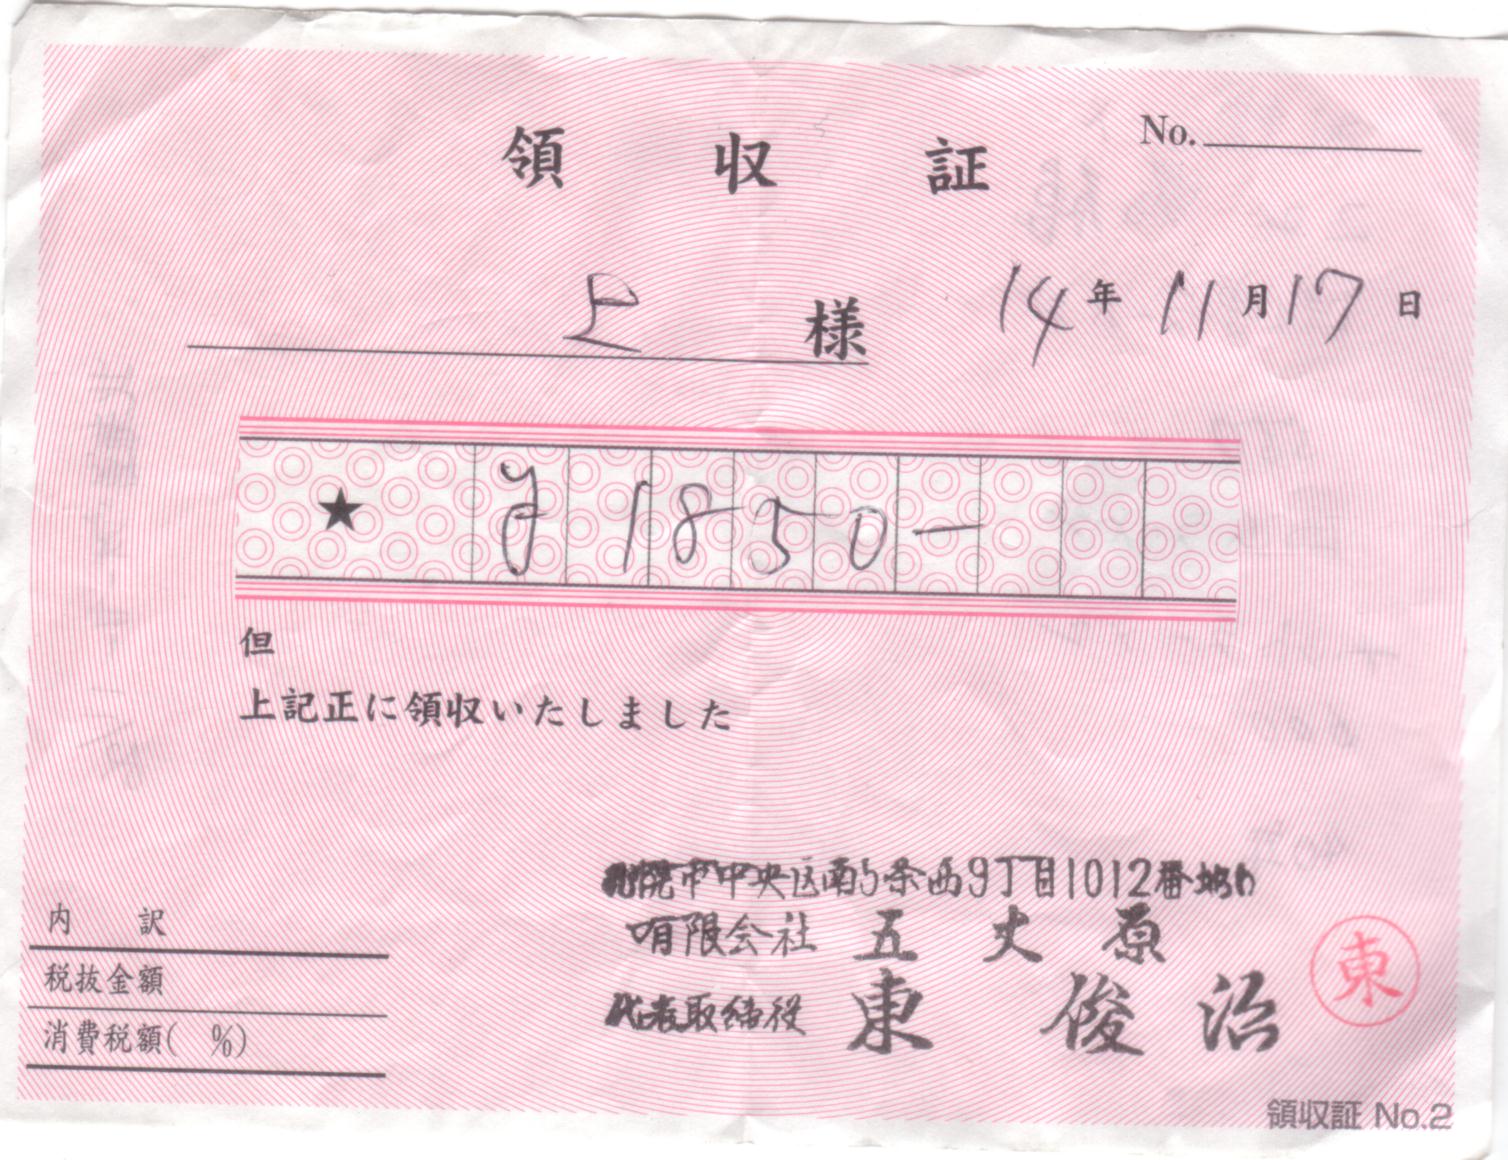 領 収 証
No.
上 様
14年11月17日
★ ¥1850-
但
上記正に領収いたしました
札幌市中央区南5条西9丁目1012番地
有限会社 五丈原
代表取締役 東 俊治
東
内 訳
税抜金額
消費税額( %)
領収証 No.2